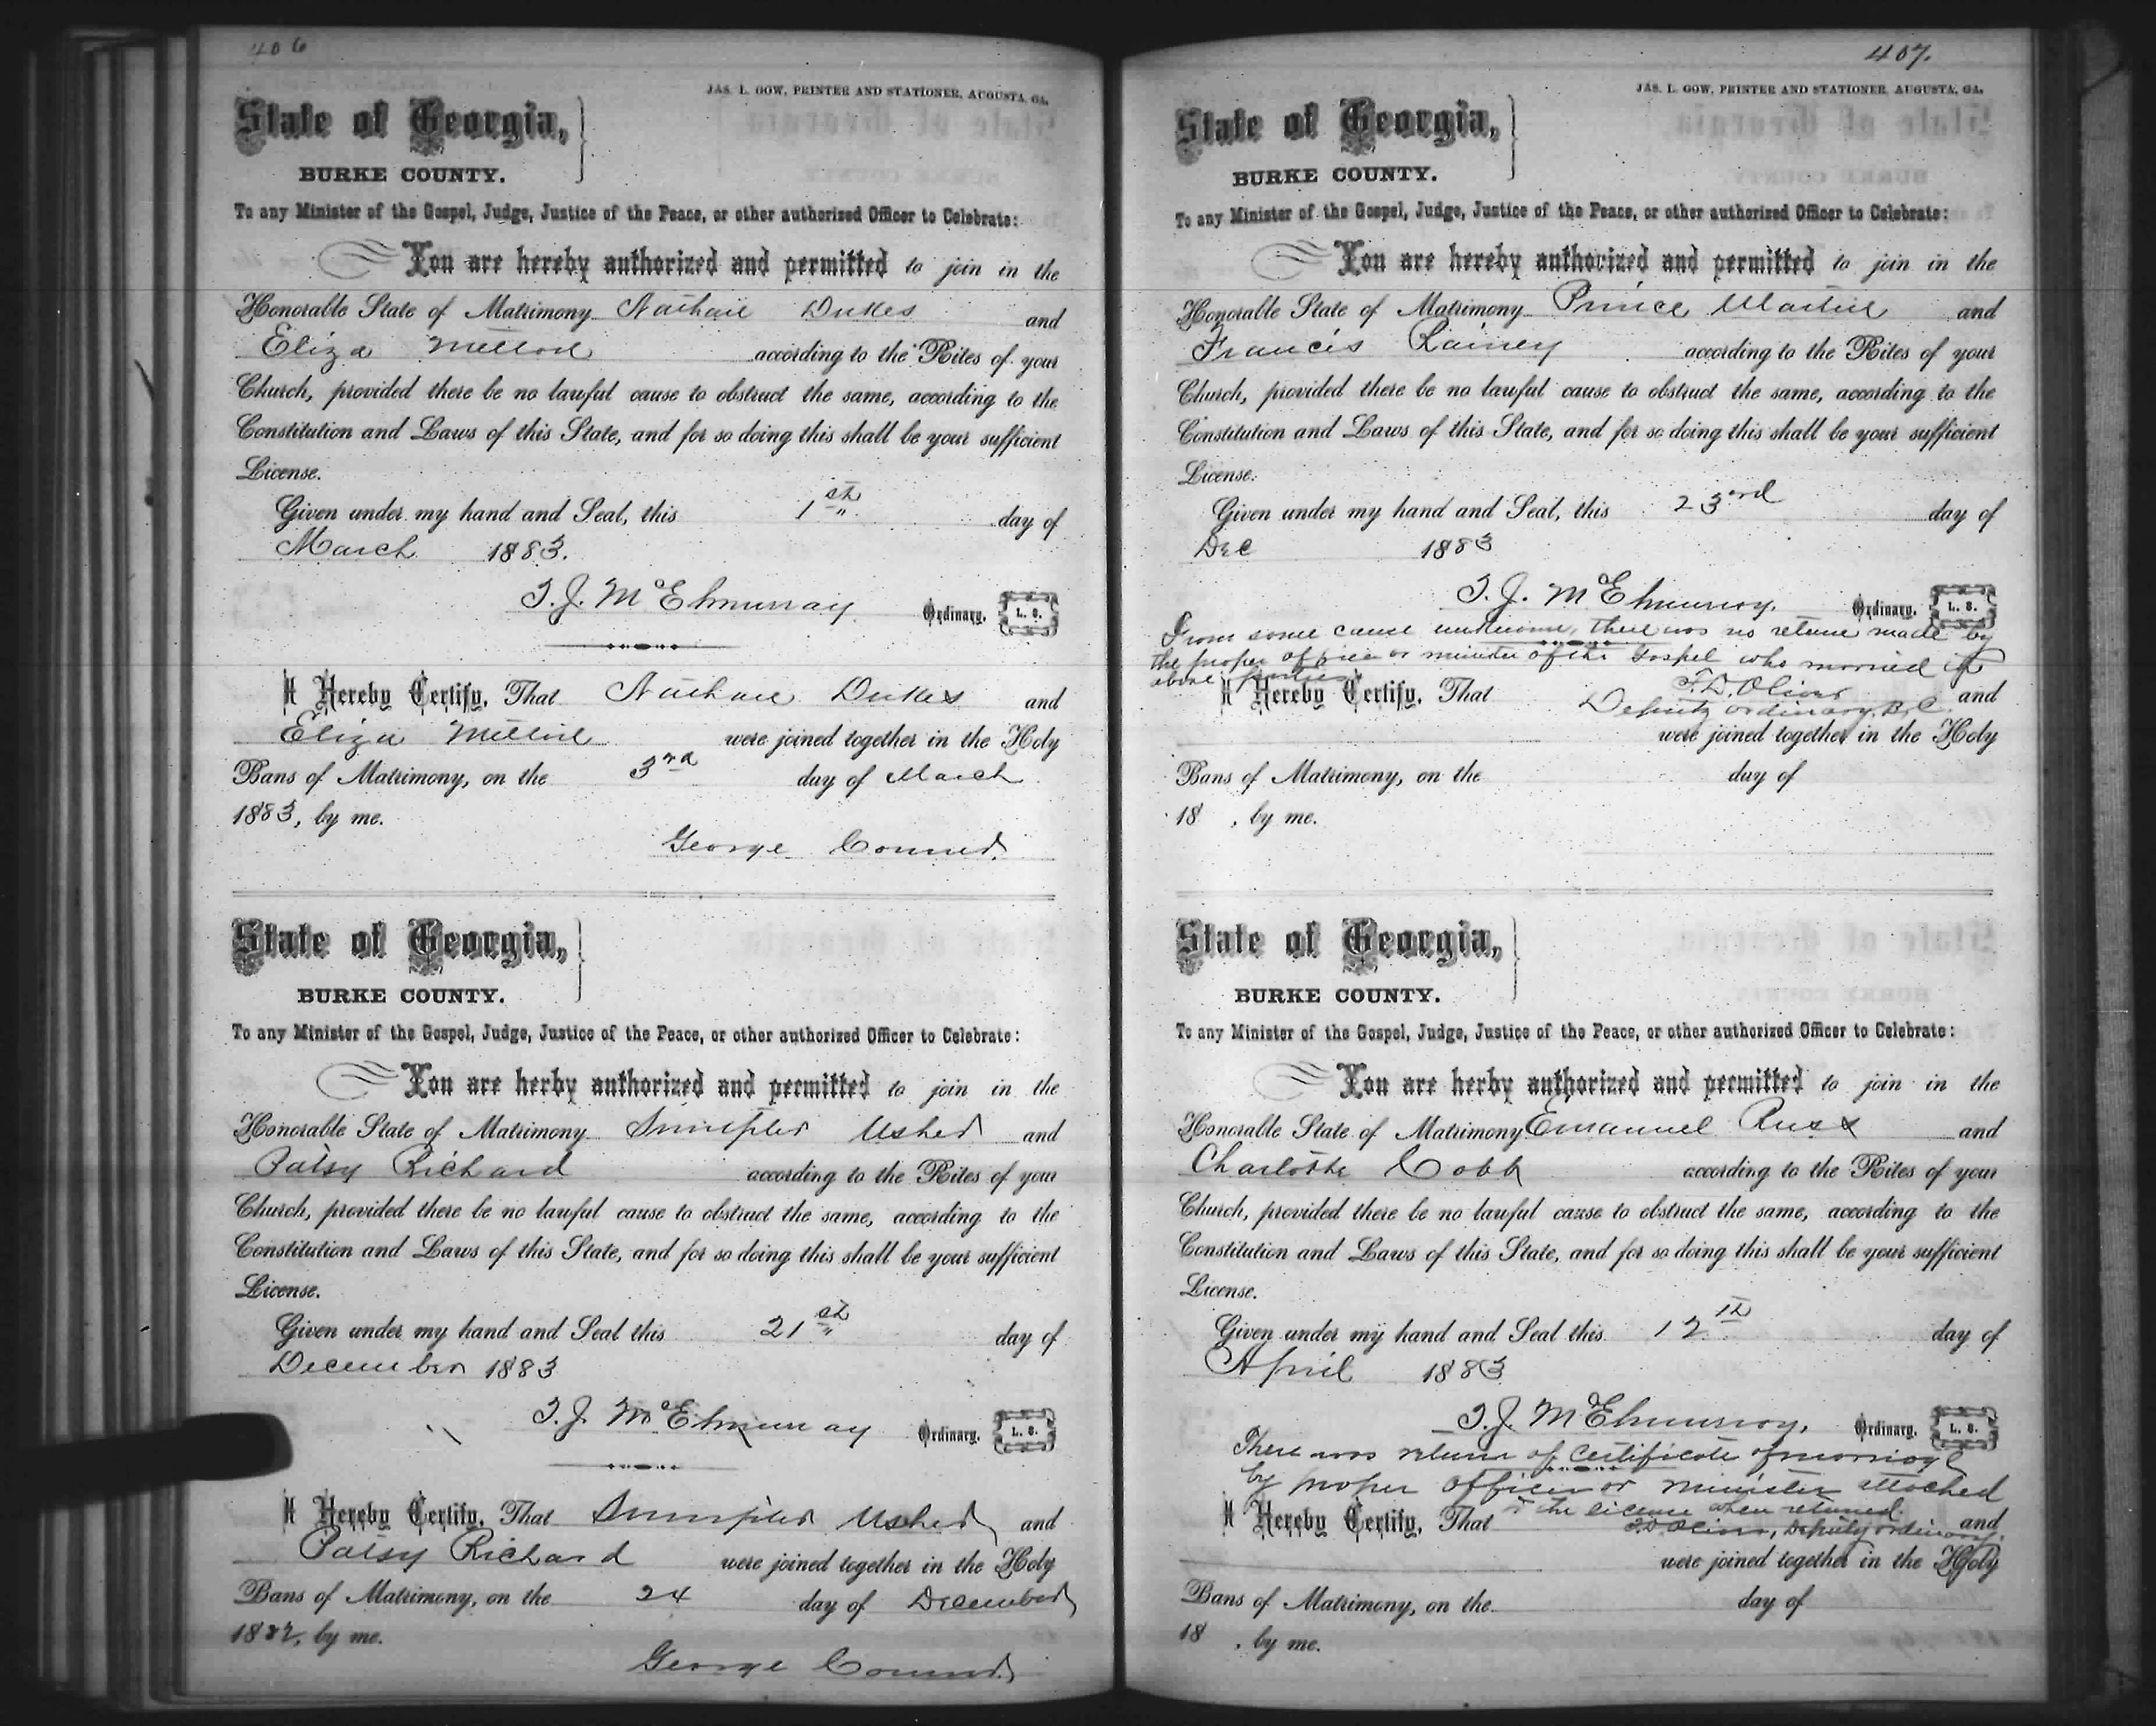 406
JAS. L. GOW, PRINTER AND STATIONER, AUGUSTA, GA.
State of Georgia,
BURKE COUNTY.
To any Minister of the Gospel, Judge, Justice of the Peace, or other authorized Officer to Celebrate:
You are hereby authorized and permitted to join in the
Honorable State of Matrimony Nathan Dukes and
Eliza according to the Rites of your
Church, provided there be no lawful cause to obstruct the same, according to the
Constitution and Laws of this State, and for so doing this shall be your sufficient
License.
Given under my hand and Seal, this 1st day of
March 1883.
T. J. McElmurray Ordinary. L. S.
I Hereby Certify, That Nathan Dukes and
Eliza were joined together in the Holy
Bans of Matrimony, on the 3rd day of March
1883, by me.
George
State of Georgia,
BURKE COUNTY.
To any Minister of the Gospel, Judge, Justice of the Peace, or other authorized Officer to Celebrate:
You are herby authorized and permitted to join in the
Honorable State of Matrimony Usher and
Patsy Richard according to the Rites of your
Church, provided there be no lawful cause to obstruct the same, according to the
Constitution and Laws of this State, and for so doing this shall be your sufficient
License.
Given under my hand and Seal this 21st day of
December 1883
T. J. McElmurray Ordinary. L. S.
I Hereby Certify, That Usher and
Patsy Richard were joined together in the Holy
Bans of Matrimony, on the 24 day of December
18 , by me.
George
407.
JAS. L. GOW, PRINTER AND STATIONER, AUGUSTA, GA.
State of Georgia,
BURKE COUNTY.
To any Minister of the Gospel, Judge, Justice of the Peace, or other authorized Officer to Celebrate:
You are hereby authorized and permitted to join in the
Honorable State of Matrimony Prince Martin and
Francis Rainey according to the Rites of your
Church, provided there be no lawful cause to obstruct the same, according to the
Constitution and Laws of this State, and for so doing this shall be your sufficient
License.
Given under my hand and Seal, this 23rd day of
Dec 1883
T. J. McElmurray. Ordinary. L. S.
From some cause unknown, there was no return made by
the proper officer or minister of the Gospel who married the
above parties.
T. D. Oliver
I Hereby Certify, That and
Deputy ordinary, B. C.
were joined together in the Holy
Bans of Matrimony, on the day of
18 , by me.
State of Georgia,
BURKE COUNTY.
To any Minister of the Gospel, Judge, Justice of the Peace, or other authorized Officer to Celebrate:
You are herby authorized and permitted to join in the
Honorable State of Matrimony Emanuel Russ and
Charlotte Cobb according to the Rites of your
Church, provided there be no lawful cause to obstruct the same, according to the
Constitution and Laws of this State, and for so doing this shall be your sufficient
License.
Given under my hand and Seal this 12th day of
April 1883
T. J. McElmurray, Ordinary. L. S.
There was return of certificate of marriage
by proper officer or minister attached
to the license when returned.
I Hereby Certify, That and
T. D. Oliver, Deputy ordinary.
were joined together in the Holy
Bans of Matrimony, on the day of
18 , by me.